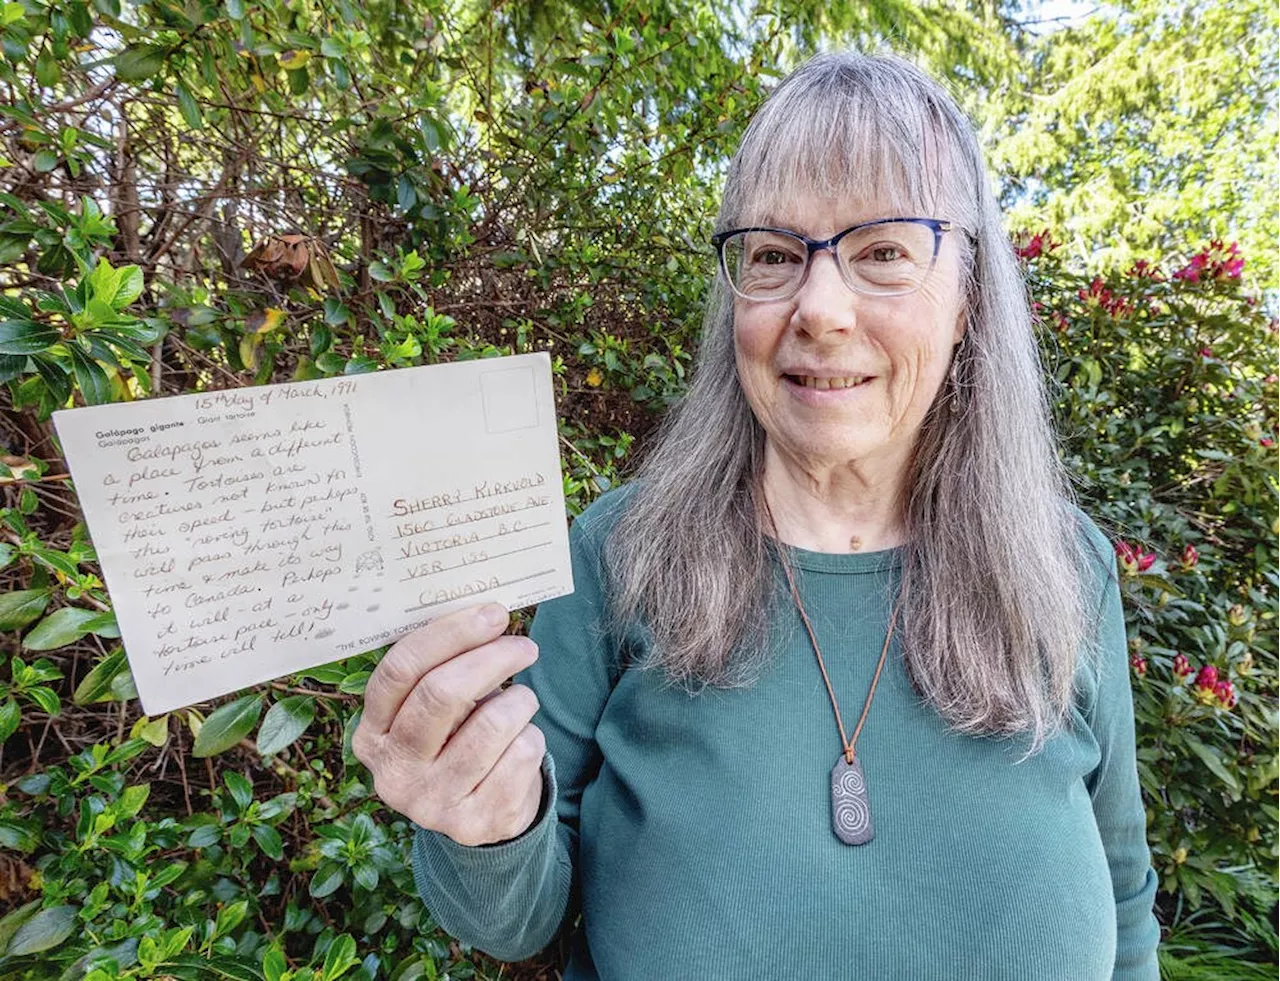 15th day of March, 1991
Galápago gigante Giant tortoise
Galápagos
Galapagos seems like
a place from a different
time. Tortoises are
creatures not known for
their speed - but perhaps
this "roving tortoise"
will pass through this
time & make its way
to Canada. Perhaps
it will - at a
tortoise pace - only
time will tell!
SHERRY KIRKVOLD
1560 GLADSTONE AVE
VICTORIA B.C.
V8R 1S5
CANADA
"THE ROVING TORTOISE"